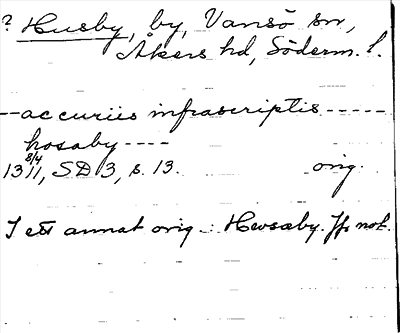 ? Husby, by, Vansö sn,
Åkers hd, Söderm. l.
-- ac curiis infrascriptis -----
hosaby ----
13 8/4 11, SD 3, s. 13. orig.
I ett annat orig.: Hwsaby. Jfr not.